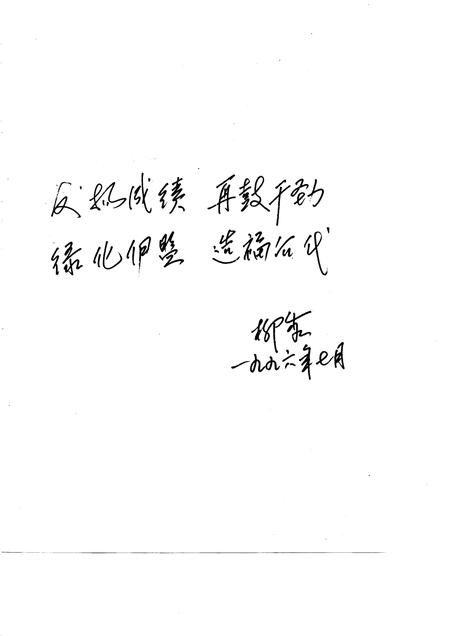 发扬成绩 再鼓干劲
绿化伊盟 造福后代
柳
一九九六年七月